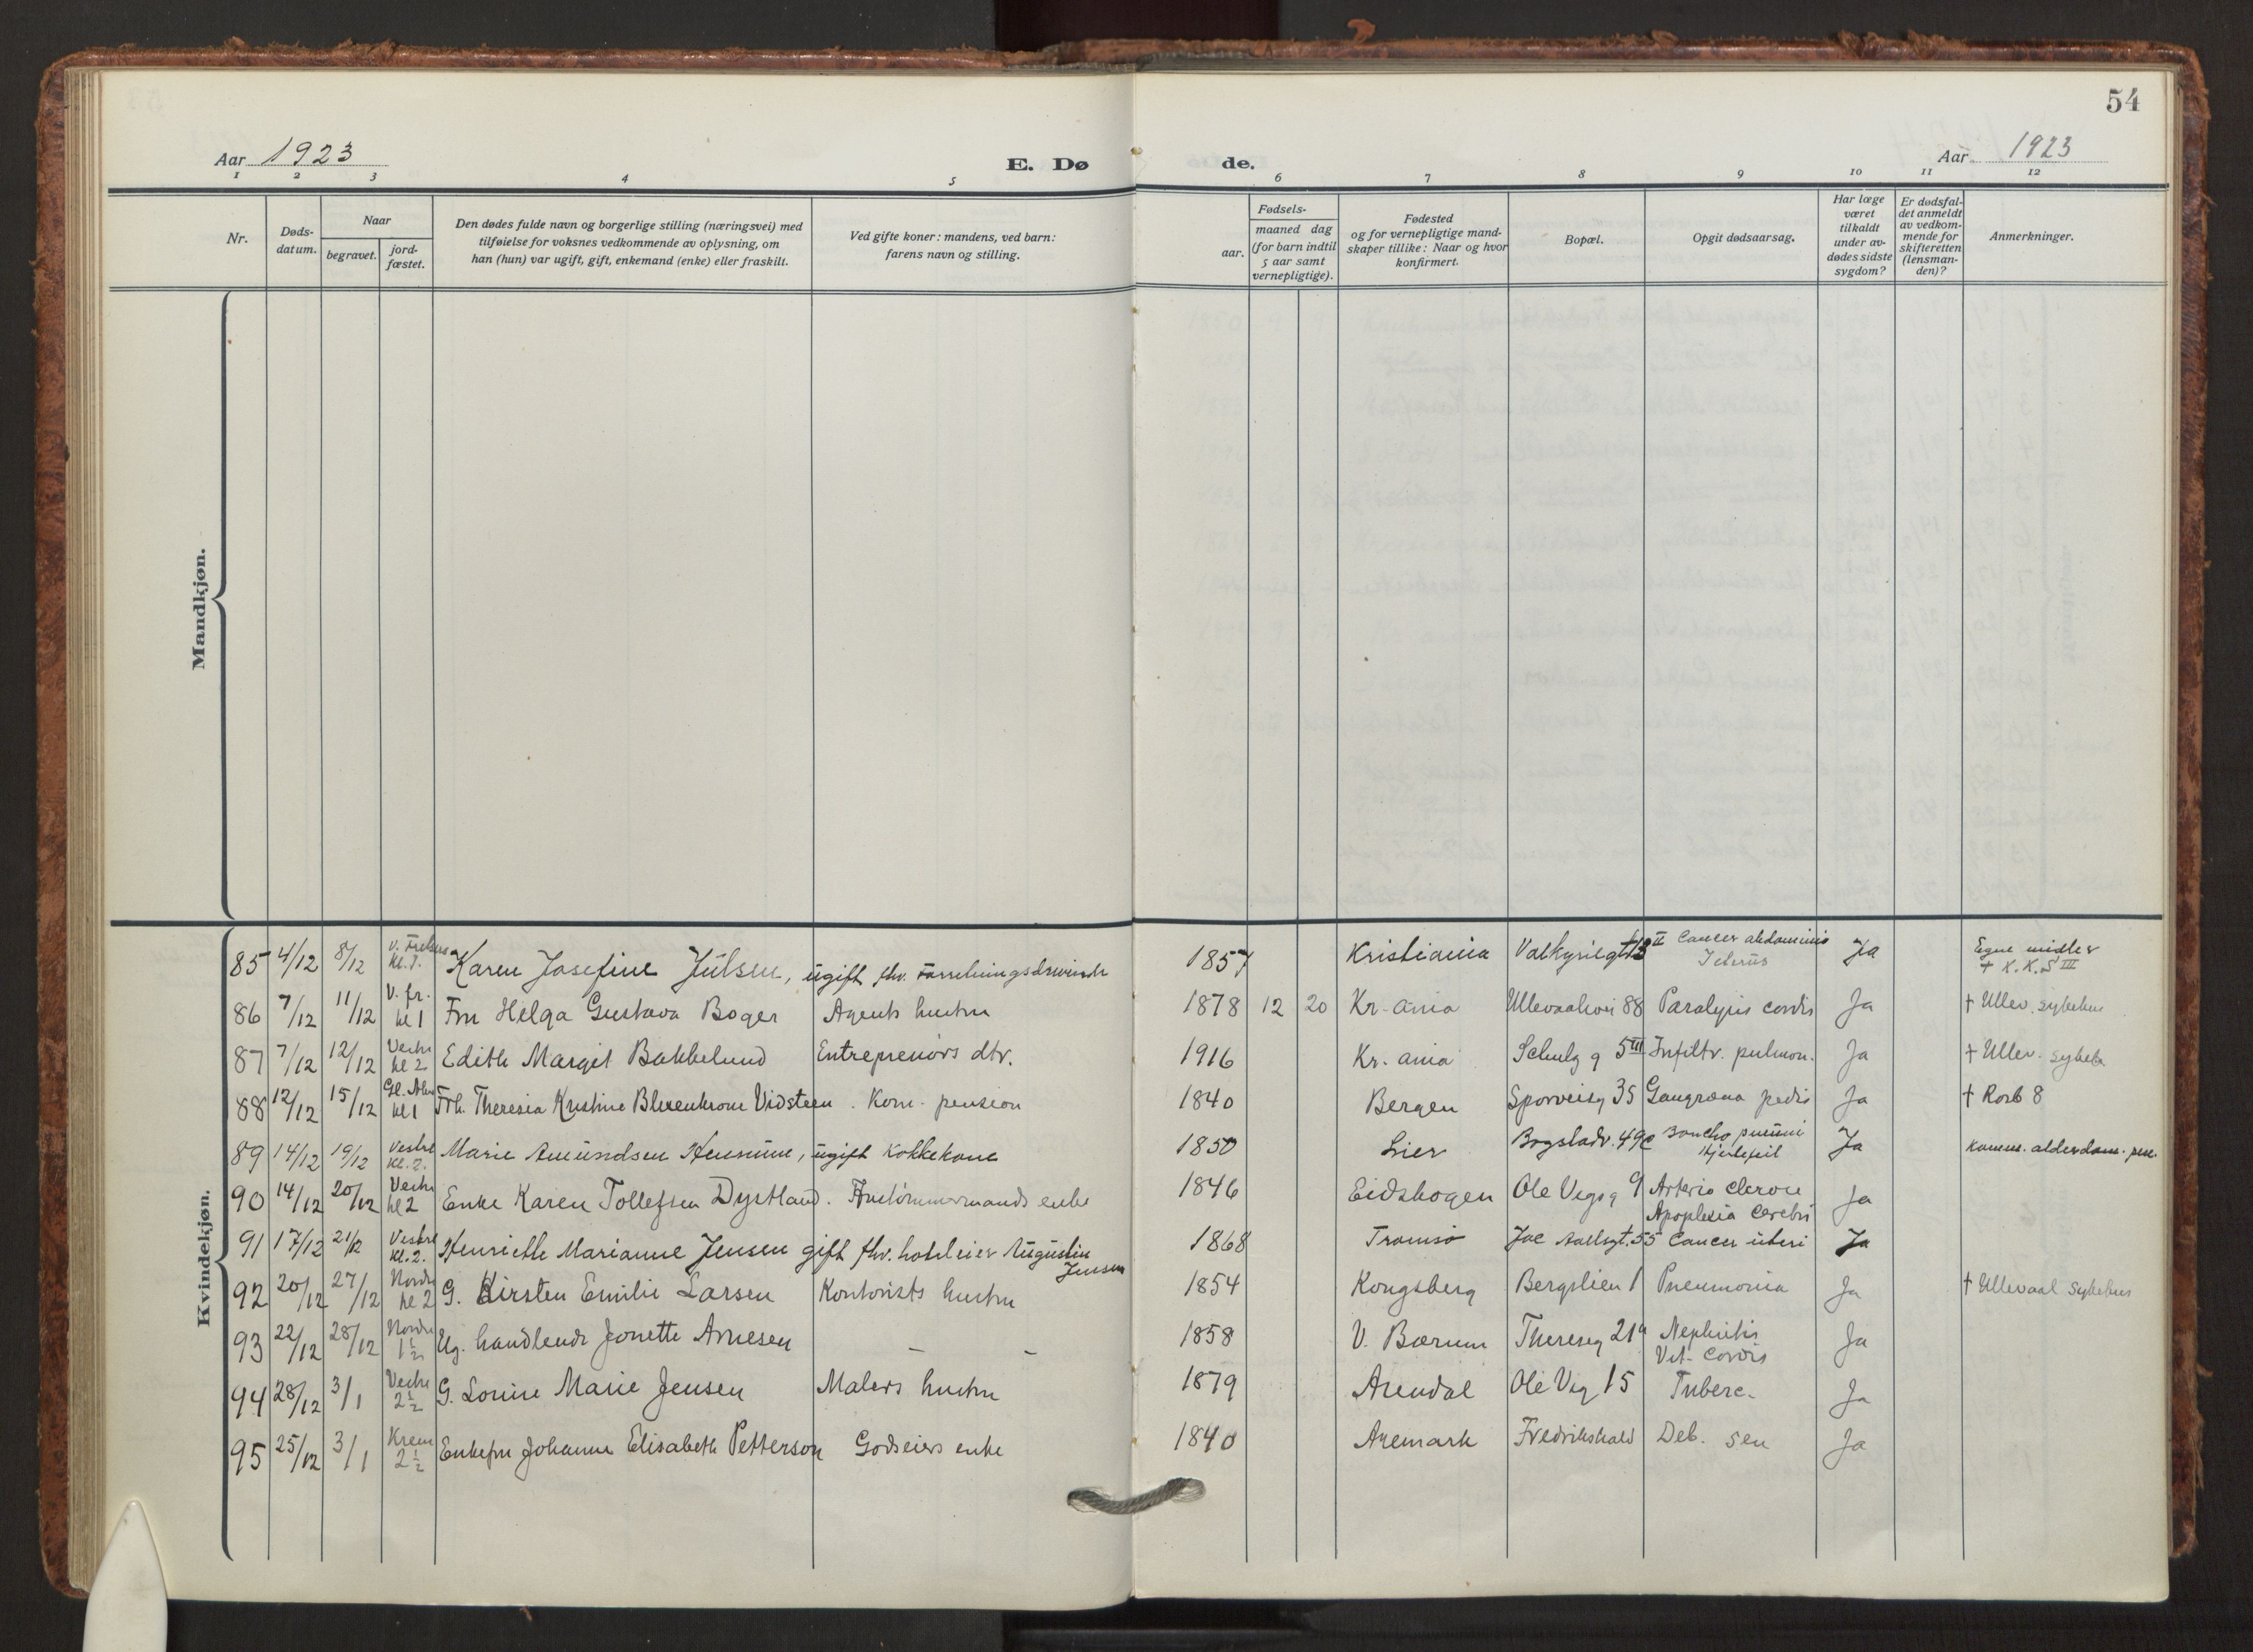 54
Aar 1923
E. Dø
de.
Aar 1923
1 2 3 4 5 6 7 8 9 10 11 12
Nr.
Døds-
datum.
Naar
begravet.
jord-
fæstet.
Den dødes fulde navn og borgerlige stilling (næringsvei) med
tilføielse for voksnes vedkommende av oplysning, om
han (hun) var ugift, gift, enkemand (enke) eller fraskilt.
Ved gifte koner: mandens, ved barn:
farens navn og stilling.
Fødsels-
aar.
maaned dag
(for barn indtil
5 aar samt
vernepligtige).
Fødested
og for vernepligtige mand-
skaper tillike: Naar og hvor
konfirmert.
Bopæl.
Opgit dødsaarsag.
Har læge
været
tilkaldt
under av-
dødes sidste
sygdom?
Er dødsfal-
det anmeldt
av vedkom-
mende for
skifteretten
(lensman-
den)?
Anmerkninger.
Mandkjøn.
Kvindekjøn.
85 4/12 8/12 V. Frelsers Kl. 1. Karen Josefine Julsen, ugift fhv. 1857 Kristiania Valkyriegt 13 II Cancer abdominis Ja Egne midler
Icterus + K.K.S III
86 7/12 11/12 V. fr. kl 1 Fru Helga Gustava Boger Agents hustru 1878 12 20 Kr-ania Ullevaalsvei 88 Paralysis cordis Ja † Ullev. sykehus
87 7/12 12/12 Vestre kl 2 Edith Margit Bakkelund Entreprenørs dtr. 1916 Kr. ania Schulzg 5 III Infiltr. pulmon. Ja † Ullev. sykeh
88 12/12 15/12 Gl. Aker kl 1 Frk. Theresia Kristine Vidsteen. Kom. pension 1840 Bergen Sporveisg 35 Gangræna pedis Ja † Rosb 8
89 14/12 19/12 Vestre Kl. 2. Marie Amundsen, ugift Kokkekone 1850 Lier Bogstadv. 49c Boncho pneumi Ja Komm. alderdom. pen.
Hjertefeil
90 14/12 20/12 Vestre kl 2 Enke Karen Tollefsen Dystland. enke 1846 Eidskogen Ole Vigsg 9 Arterio clerose Ja
Apoplexia cerebri
91 17/12 21/12 Vestre Kl. 2. Henriette Marianne Jensen gift fhv. hoteleier Augustin 1868 Tromsø Jac Aallsgt. 55 Cancer uteri Ja
Jensen
92 20/12 27/12 Nordre kl 2 G. Kirsten Emilie Larsen Kontorists hustru 1854 Kongsberg Bergslien 1 Pneumonia Ja † Ullevaal sykehus
93 22/12 28/12 Nordre 1½ Ug. handlende Jonette Arnesen — — 1858 V. Bærum Theresesg 21a Nephritis Ja
Vit. Cordis
94 28/12 3/1 Vestre 2½ G. Louise Marie Jensen Malers hustru 1879 Arendal Ole Vig 15 Tuberc. Ja
95 25/12 3/1 Krem 2½ Enkefru Johanne Elisabeth Petterson Godseiers enke 1840 Aremark Fredrikshald Deb. sen Ja